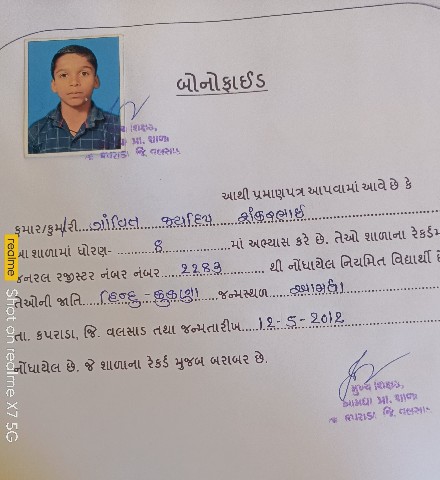 બોનોફાઈડ
મુખ્ય શિક્ષક,
પ્રા. શાળા
કપરાડા જિ. વલસાડ
આથી પ્રમાણપત્ર આપવામાં આવે છે કે
કુમાર/કુમારી ગાંવિત જયદિપ શંકરભાઈ
આ શાળામાં ધોરણ- 8 માં અભ્યાસ કરે છે. તેઓ શાળાના રેકર્ડમાં
જનરલ રજીસ્ટર નંબર નંબર ૨૨૬૩ થી નોંધાયેલ નિયમિત વિદ્યાર્થી છે
તેઓની જાતિ હિન્દુ-કુકણા જન્મસ્થળ
તા. કપરાડા, જિ. વલસાડ તથા જન્મતારીખ 12-5-2012
નોંધાયેલ છે. જે શાળાના રેકર્ડ મુજબ બરાબર છે.
મુખ્ય શિક્ષક,
આમધા પ્રા. શાળા
તા કપરાડા જિ. વલસાડ
realme Shot on realme X7 5G